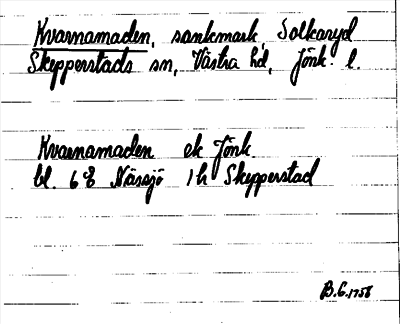 Kvarnamaden, sankmark, Solkaryd
Skepperstads sn, Västra hd, Jönk. l.
Kvarnamaden ek Jönk.
bl. 6 Nässjö 1h Skepperstad
B.G. 1758